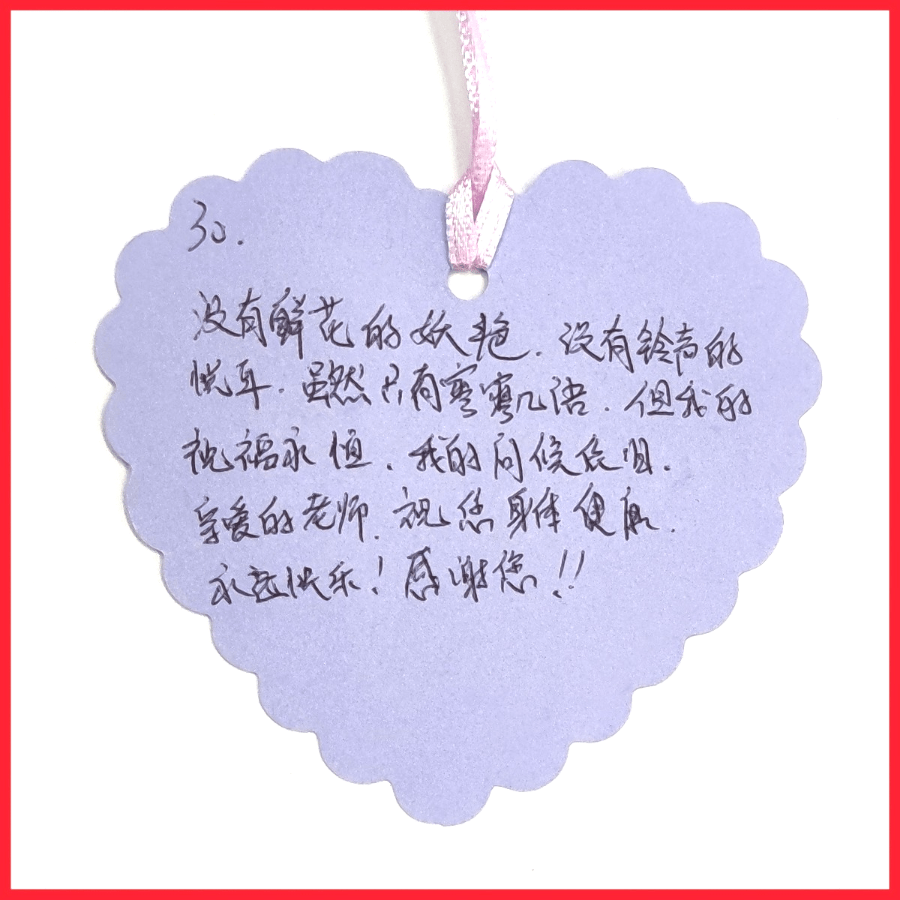 30.
没有鲜花的妖艳.没有铃声的
悦耳.虽然只有寥寥几语.但我的
祝福永恒.我的问候依旧.
亲爱的老师.祝您身体健康.
永远快乐!感谢您!!